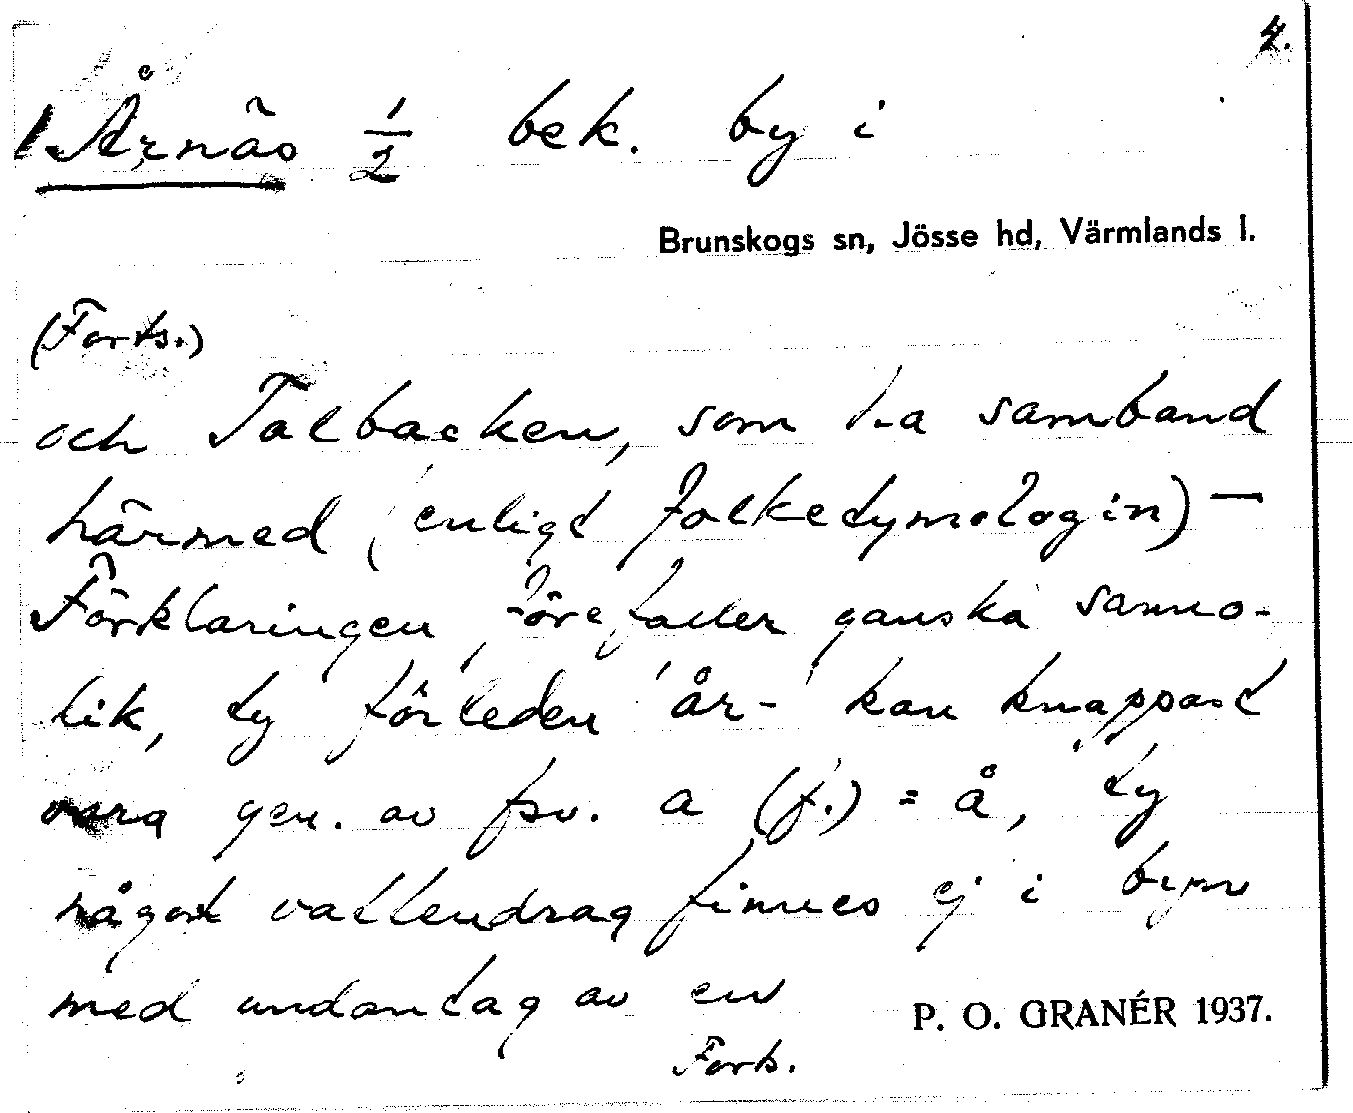 4.
Årnäs 1/2 bek. by i
Brunskogs sn, Jösse hd, Värmlands l.
(Forts.)
och Talbacken, som ha samband
härmed (enligt folketymologin) —
Förklaringen förefaller ganska sanno-
lik, ty förleden år- kan knappast
vara gen. av fsv. a (f.) = å, ty
något vattendrag finnes ej i byn
med undantag av en
P. O. GRANÉR 1937.
Forts.